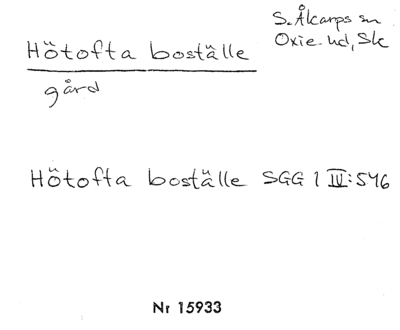 S. Ålkarps sn
Oxie hd, Sk
Hötofta boställe
gård
Hötofta boställe SGG 1 IV:546
Nr 15933